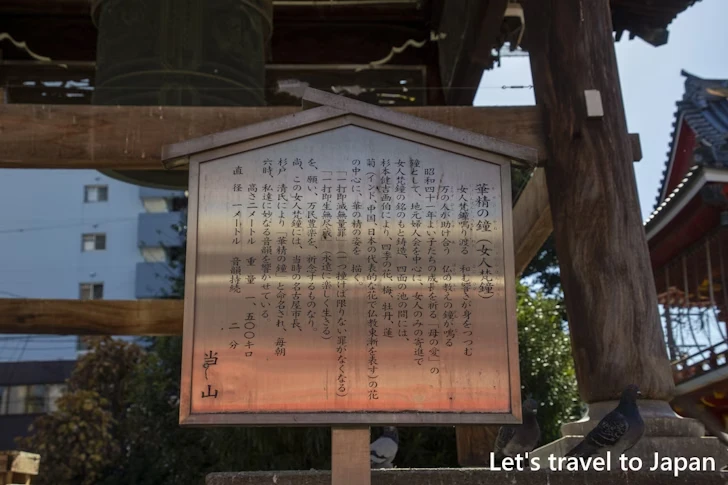 華精の鐘（女人梵鐘）
女人梵鐘鳴り渡る　和む響きが身をつつむ
万の人が助け合う　仏の教えの鐘が鳴る
昭和四十一年よい子たちの成長を祈る「母の愛」の
鐘として、地元婦人会を中心に、女人のみの寄進で
女人梵鐘の銘のもと鋳造、四面の池の間には、
杉本健吉画伯により、四季の花、梅、牡丹、蓮
菊（インド、中国、日本の代表的な花で仏教東漸を表す）の花
の中心に、華の精の姿を描く。
「一打即滅無量罪」（一つ撞けば限りない罪がなくなる）
「一打即生無尽歓」（永遠に楽しく生きる）
を、願い、万民豊楽を、祈念するものなり。
尚、この女人梵鐘には、当時の名古屋市長、
杉戸　清氏により「華精の鐘」と命名され、毎朝
六時、私達に妙なる音韻を響かせている。
高さ二メートル　重量　一、五〇〇キロ
直径　一メートル　音韻持続　二分
当山
Let's travel to Japan